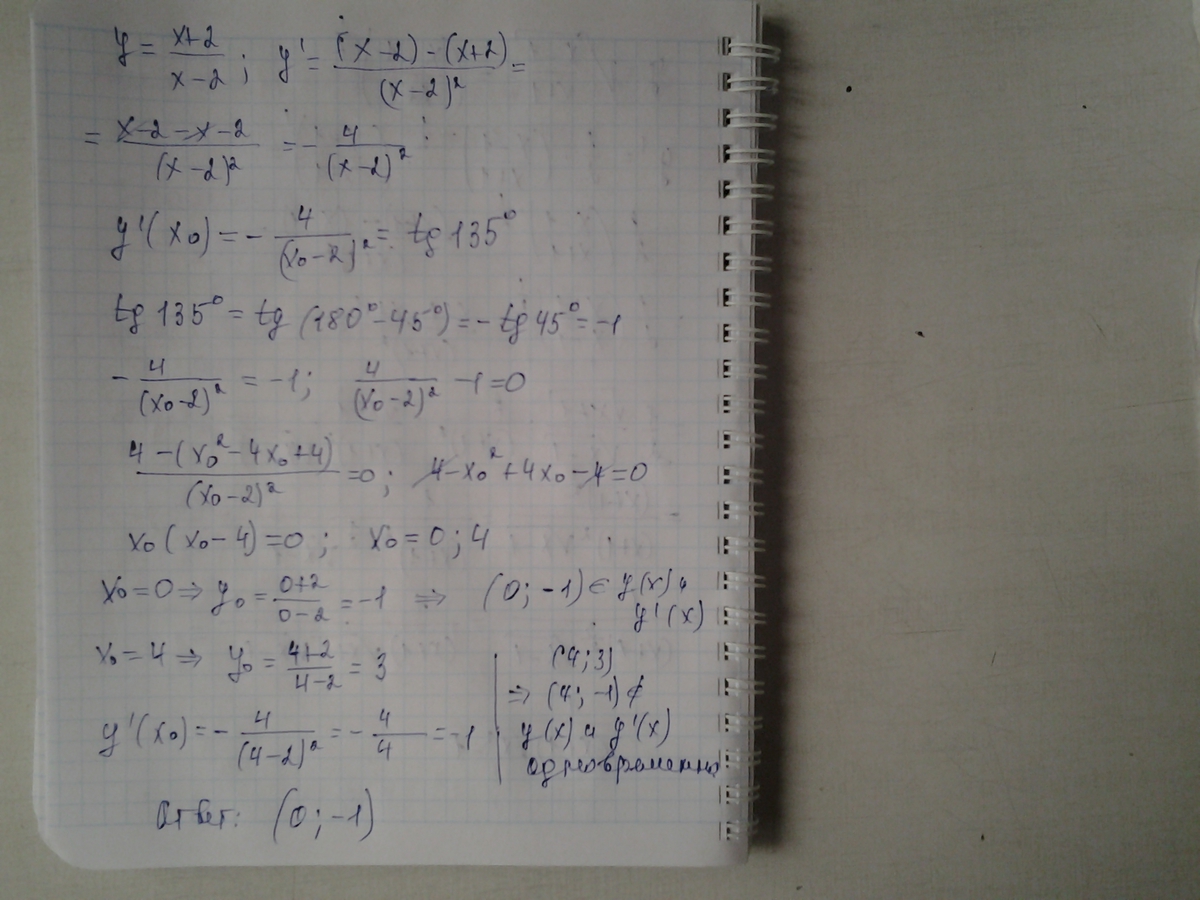 y = (x+2)/(x-2); y' = ((x-2)-(x+2))/(x-2)² =
= (x-2-x-2)/(x-2)² = -4/(x-2)²;
y'(x₀) = -4/(x₀-2)² = tg 135°
tg 135° = tg (180°-45°) = -tg 45° = -1
-4/(x₀-2)² = -1; 4/(x₀-2)² -1=0
(4-(x₀²-4x₀+4))/(x₀-2)² =0; 4-x₀²+4x₀-4=0
x₀(x₀-4)=0; x₀=0; 4
x₀=0 ⇒ y₀ = (0+2)/(0-2) = -1 ⇒ (0; -1) ∈ y(x) и
y'(x)
x₀=4 ⇒ y₀ = (4+2)/(4-2) = 3
y'(x₀) = -4/(4-2)² = -4/4 = -1
(4; 3)
⇒ (4; -1) ∉
y(x) и y'(x)
одновременно
Ответ: (0; -1)